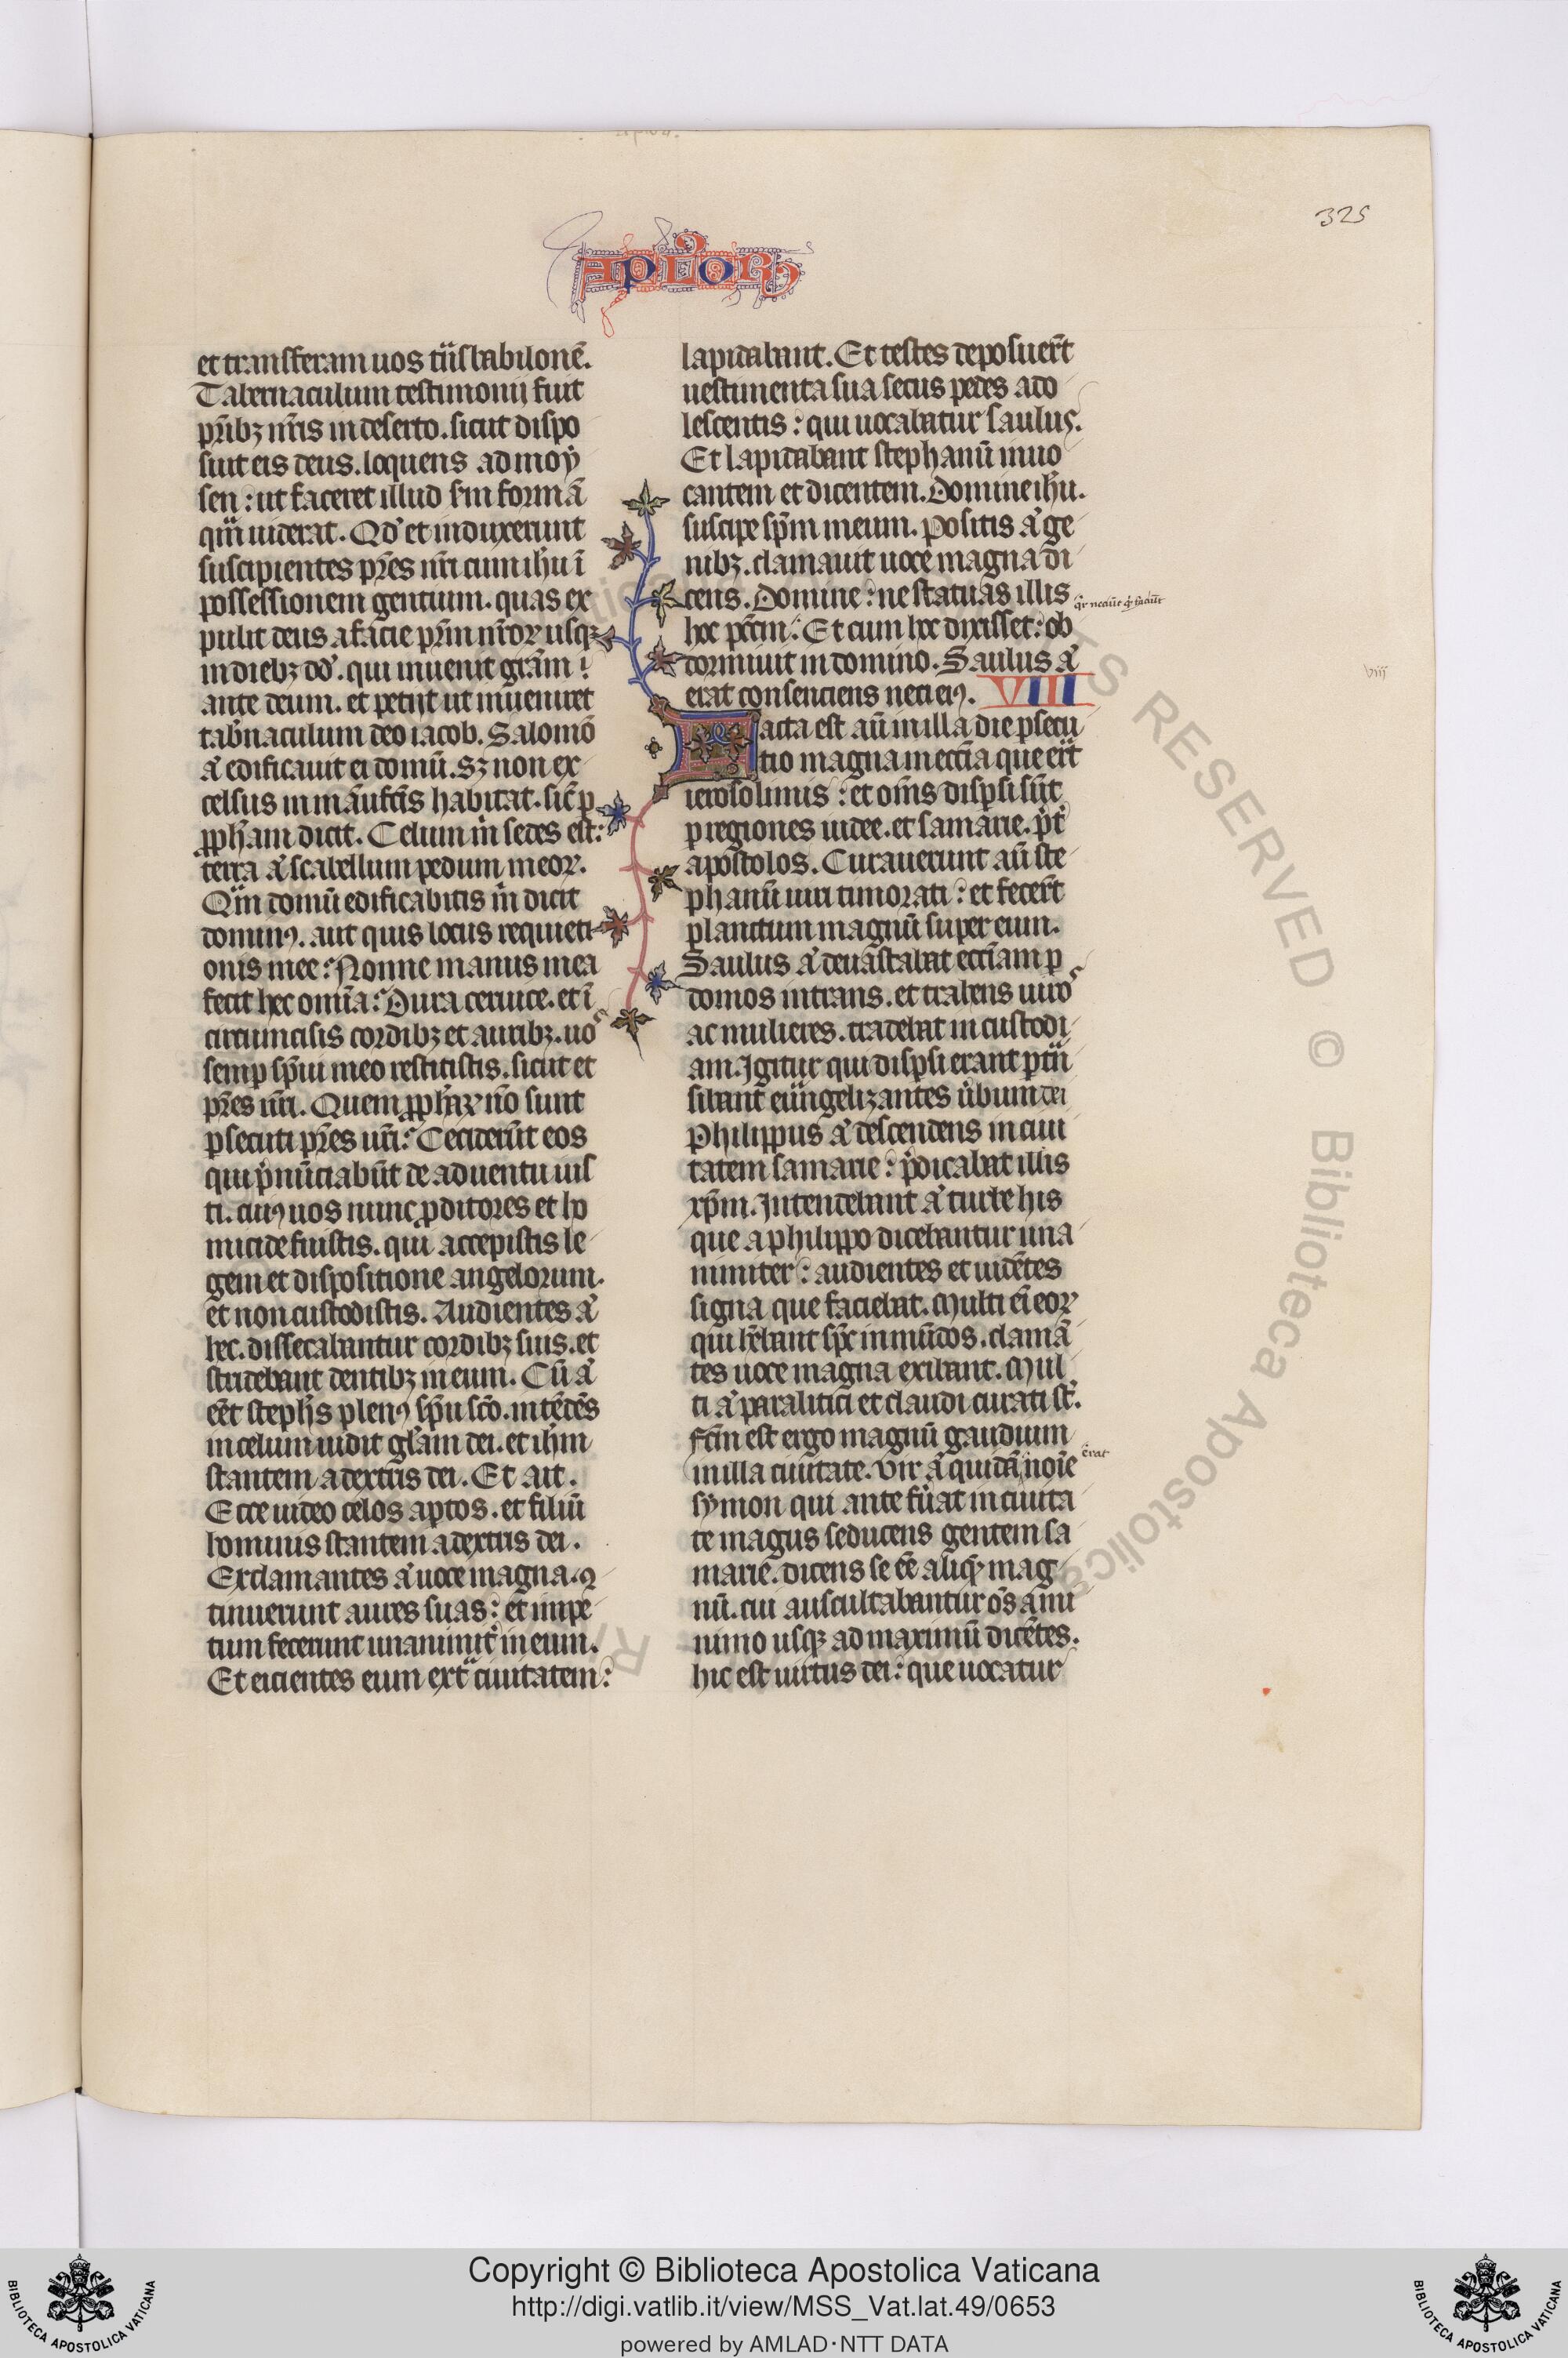 325
aplor
et transferam uos t̃ns babilonẽ.
Tabernaculum testimonij fuit
pr̃ibꝫ nr̃is in deserto. sicut dispo
suit eis deus. loquens ad moy
sen: ut faceret illud sm̃ formã
qm̃ uiderat. Qd̕ et induxerunt
suscipientes pr̃es nr̃i cum ihũ ĩ
possessionem gentium. quas ex
pulit deus a facie pr̃m nr̃oꝝ usqꝫ
in diebꝫ dd̕. qui inuenit gr̃am
ante deum. et petijt ut inueniret
tab̃naculum deo iacob. Salomõ
a̕ edificauit ei domũ. Sꝫ non ex
celsus in mãufc̃is habitat. sic̃ ꝑ
ꝓph̃am dicit. Celum m̃ sedes est:
terra a̕ scabellum pedum meoꝝ.
Qm̃ domũ edificabitis m̃ dicit
dominꝰ. aut quis locus requieti
onis mee: Nonne manus mea
fecit hec omĩa: Dura ceruice. et ĩ
circumcisis cordibꝫ et auribꝫ. uos
semꝑ sp̃ui meo restitistis. sicut et
pr̃es ur̃i. Quem ꝓph̃aꝝ nõ sunt
ꝑsecuti pr̃es ur̃i: Cecider̃ut eos
qui p̃nũciabũt de aduentu ius
ti. cuiꝰ uos nunc ꝓditores et ho
micide fuistis. qui accepistis le
gem et dispositione angelorum.
et non custodistis. Audientes a̕
hec. dissecabantur cordibꝫ suis. et
stridebant dentibꝫ in eum. Cũ a̕
eẽt steph̃s plenꝰ sp̃u sc̃o. intẽdẽs
in celum uidit gl̃am dei. et ihm̃
stantem a dextris dei. Et ait.
Ecce uideo celos aꝑtos. et filiũ
hominis stantem a dextris dei.
Exclamantes a̕ uoce magna. ꝯ
tinuerunt aures suas: et impe
tum fecerunt unanimit̃ in eum.
Et eicientes eum ext̃ ciuitatem:
lapidabant. Et testes deposuer̃t
uestimenta sua secus pedes ado
lescentis: qui uocabatur saulus.
Et lapidabant stephanũ inuo
cantem et dicentem. Domine ihũ.
suscipe sp̃m meum. Positis a̕ ge
nibꝫ. clamauit uoce magna di
cens. Domine: ne statuas illis
hoc pcc̃m: Et cum hoc dixisset: ob
dormiuit in domino. Saulus a̕
viij
erat consenciens neci eiꝰ. VIII
Facta est aũ in illa die ꝑsecu
tio magna in ecc̃ia que er̃t
ierosolimis: et om̃s disꝑsi sũt
ꝑ regiones iudee. et samarie. p̃t̃
apostolos. Curauerunt aũ ste
phanũ uiri timorati: et fecer̃t
planctum magnũ super eum.
Saulus a̕ deuastabat ecc̃iam ꝑ
domos intrans. et trahens uiros
ac mulieres. tradebat in custodi
am. Igitur qui disꝑsi erant ꝑtñ
sibant euũgelizantes ũbum dei
Philippus a̕ descendens in ciui
tatem samarie: p̃dicabat illis
xp̃m. Intendebant a̕ turbe his
que a philippo dicebantur una
nimiter: audientes et uidẽtes
signa que faciebat. Multi ẽi eoꝝ
qui hẽbant sp̃c inmũdos. clamã
tes uoce magna exibant. Mul
ti a̕ paralitici et claudi curati st̃.
Fc̃m est ergo magnũ gaudium
in illa ciuitate. Vir a̕ quidã noĩe
erat
symon qui ante fũat in ciuita
te magus seducens gentem sa
marie. dicens se eẽ aliqꝫ mag
nũ. cui auscultabantur om̃s a mi
nimo usqꝫ ad maximũ dicẽtes.
hic est uirtus dei: que uocatur
Copyright © Biblioteca Apostolica Vaticana
http://digi.vatlib.it/view/MSS_Vat.lat.49/0653
powered by AMLAD·NTT DATA
BIBLIOTECA APOSTOLICA VATICANA
BIBLIOTECA APOSTOLICA VATICANA
RESERVED © Biblioteca Apostolica